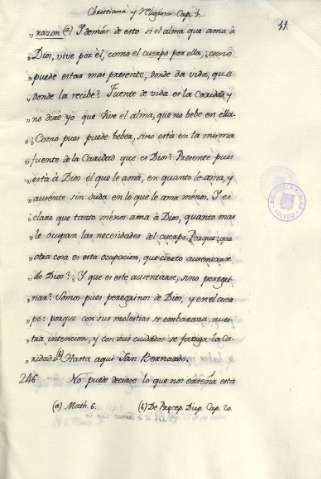 Christiana y Magina Cap. 1.
11.
razon (a) Y demás de esto si el alma que ama à
Dios, vive por èl, como el cuerpo por ella, como
puede estar mas presente, donde da vida, que
donde la recibe? Fuente de vida es la Caridad, y
no dirè yo que vive el alma, que no bebe en ella.
Como pues puede beber, sino està en la misma
fuente de la Caridad que es Dios? Presente pues
està à Dios el que le ama, en quanto le ama, y
ausente sin duda en lo que le ama menos. Y es
claro que tanto menos ama à Dios, quanto mas
le ocupan las necesidades del cuerpo. Porque que
otra cosa es esta ocupacion, que cierto ausentarse
de Dios? Y que es este ausentarse, sino peregri-
nar? Somos pues peregrinos de Dios, y en el cuer-
po: porque con sus molestias se embaraza nues-
tra intencion, y con sus cuidados se fatiga la Ca-
ridad. (b) Hasta aqui San Bernardo.
246 No puede decirse lo que nos enseña esta
(a) Math. 6. (b) De Precep. Disp. Cap. 20.